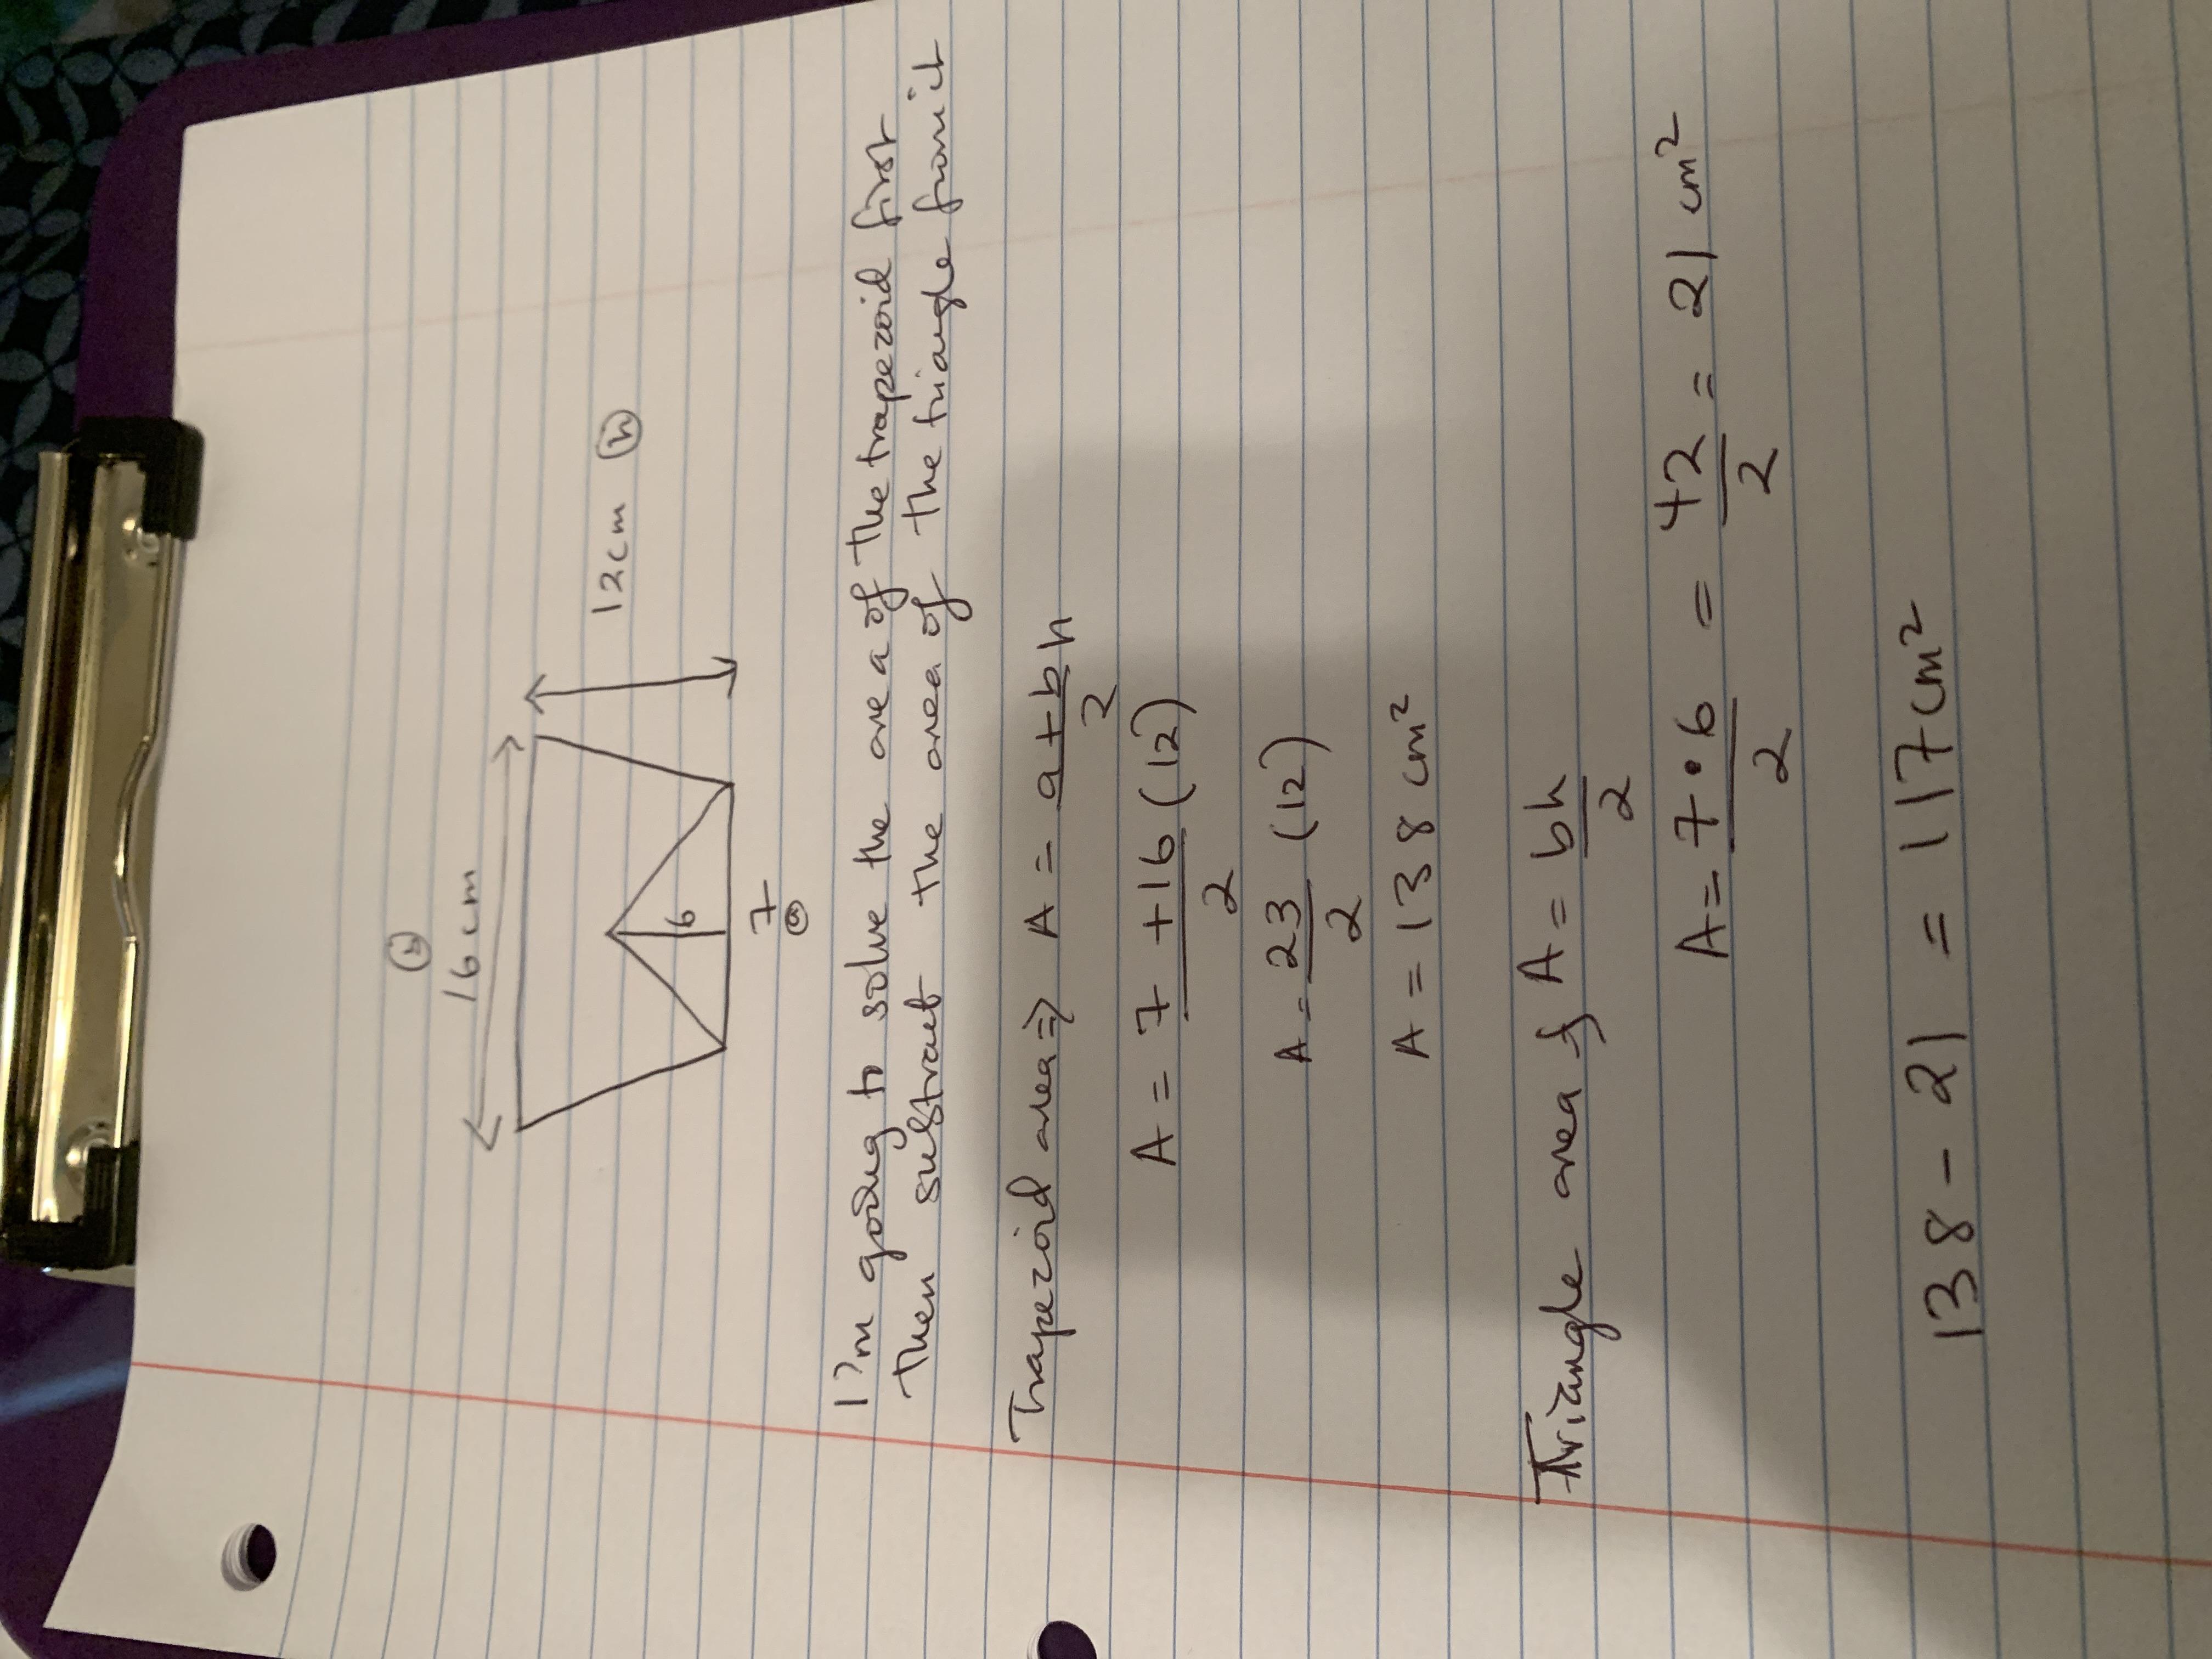 (b)
16cm
12cm (h)
6
7
(a)
I'm going to solve the area of the trapezoid first
Then substract the area of the triangle from it
Trapezoid area => A = a+b/2 h
A = 7 +16/2 (12)
A = 23/2 (12)
A = 138 cm²
Triangle area } A = bh/2
A = 7•6/2 = 42/2 = 21 cm²
138 - 21 = 117cm²